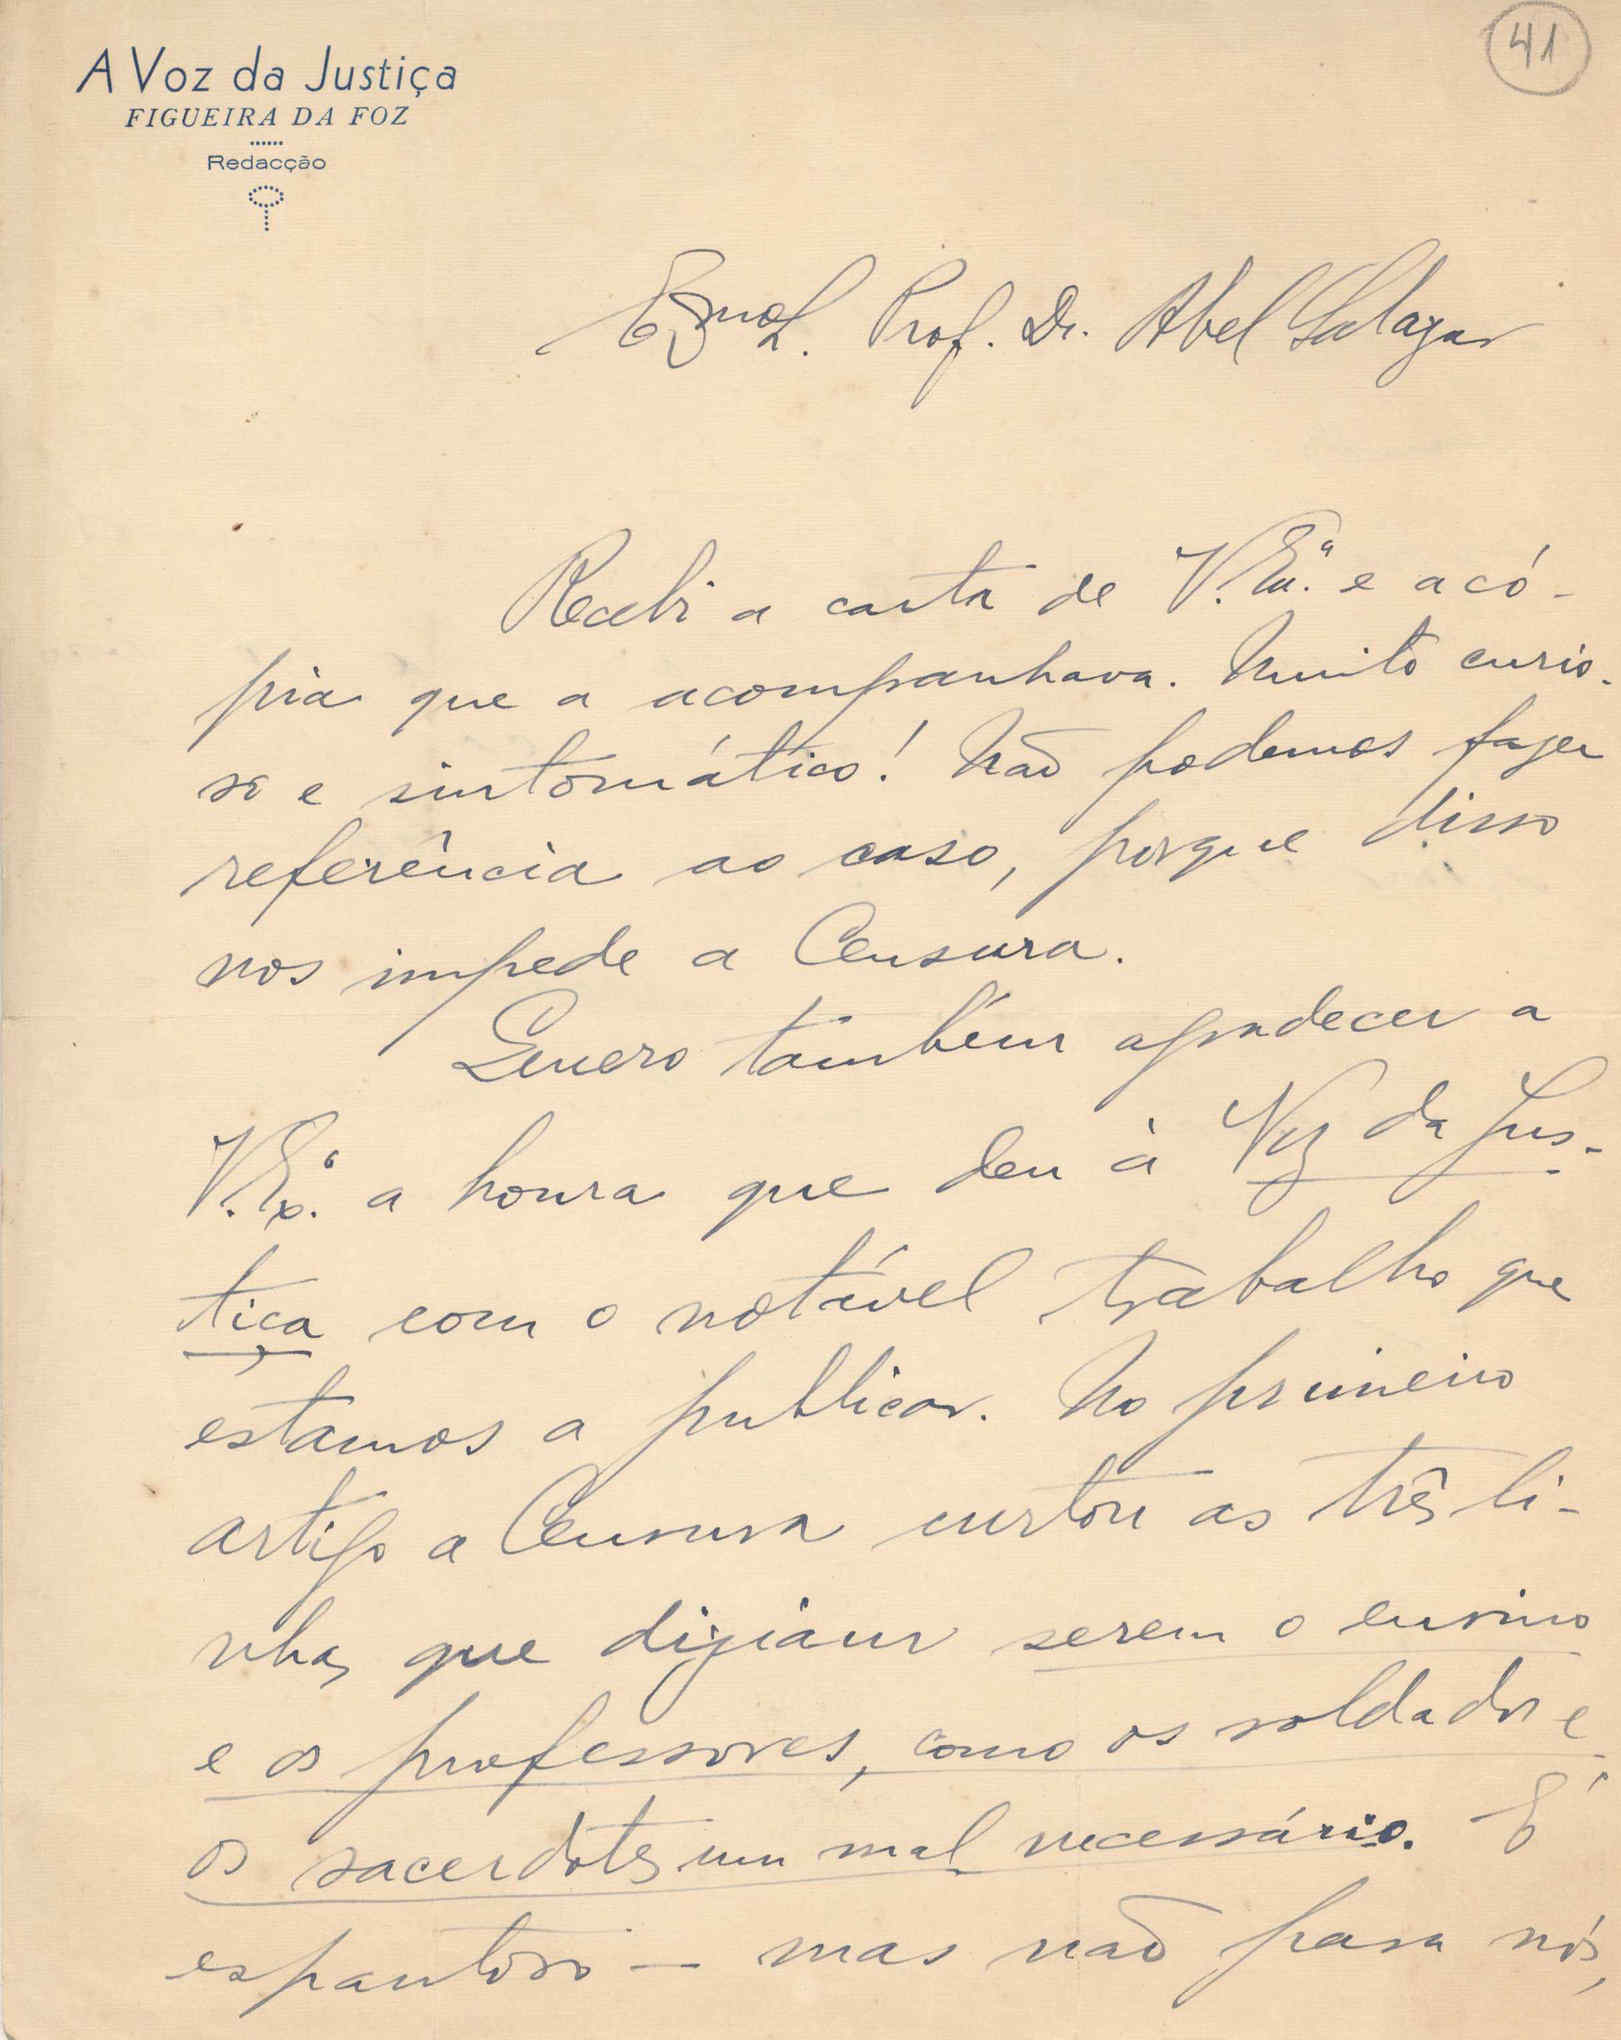 41
A Voz da Justiça
FIGUEIRA DA FOZ
Redacção
Exmo Sr. Prof. Dr. Abel Salazar
Recebi a carta de V. Ex.ª e a có-
pia que a acompanhava. Muito curio-
so e sintomático! Não podemos fazer
referência ao caso, porque disso
nos impede a Censura.
Quero também agradecer a
V. Ex.ª a honra que deu à Voz da Jus-
tiça com o notável trabalho que
estamos a publicar. No primeiro
artigo a Censura cortou as três li-
nhas que diziam serem o ensino
e os professores, como os soldados e
os sacerdotes um mal necessário. É
espantoso — mas não para nós,